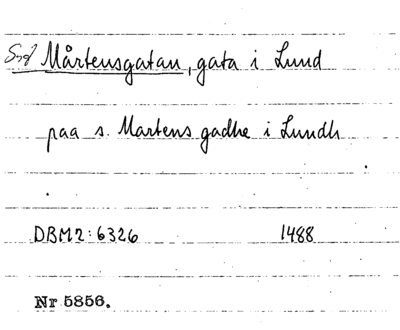 Mårtensgatan, gata i Lund
paa s. Martens gadhe i Lundh
DBM2:6326 1488
Nr 5856.